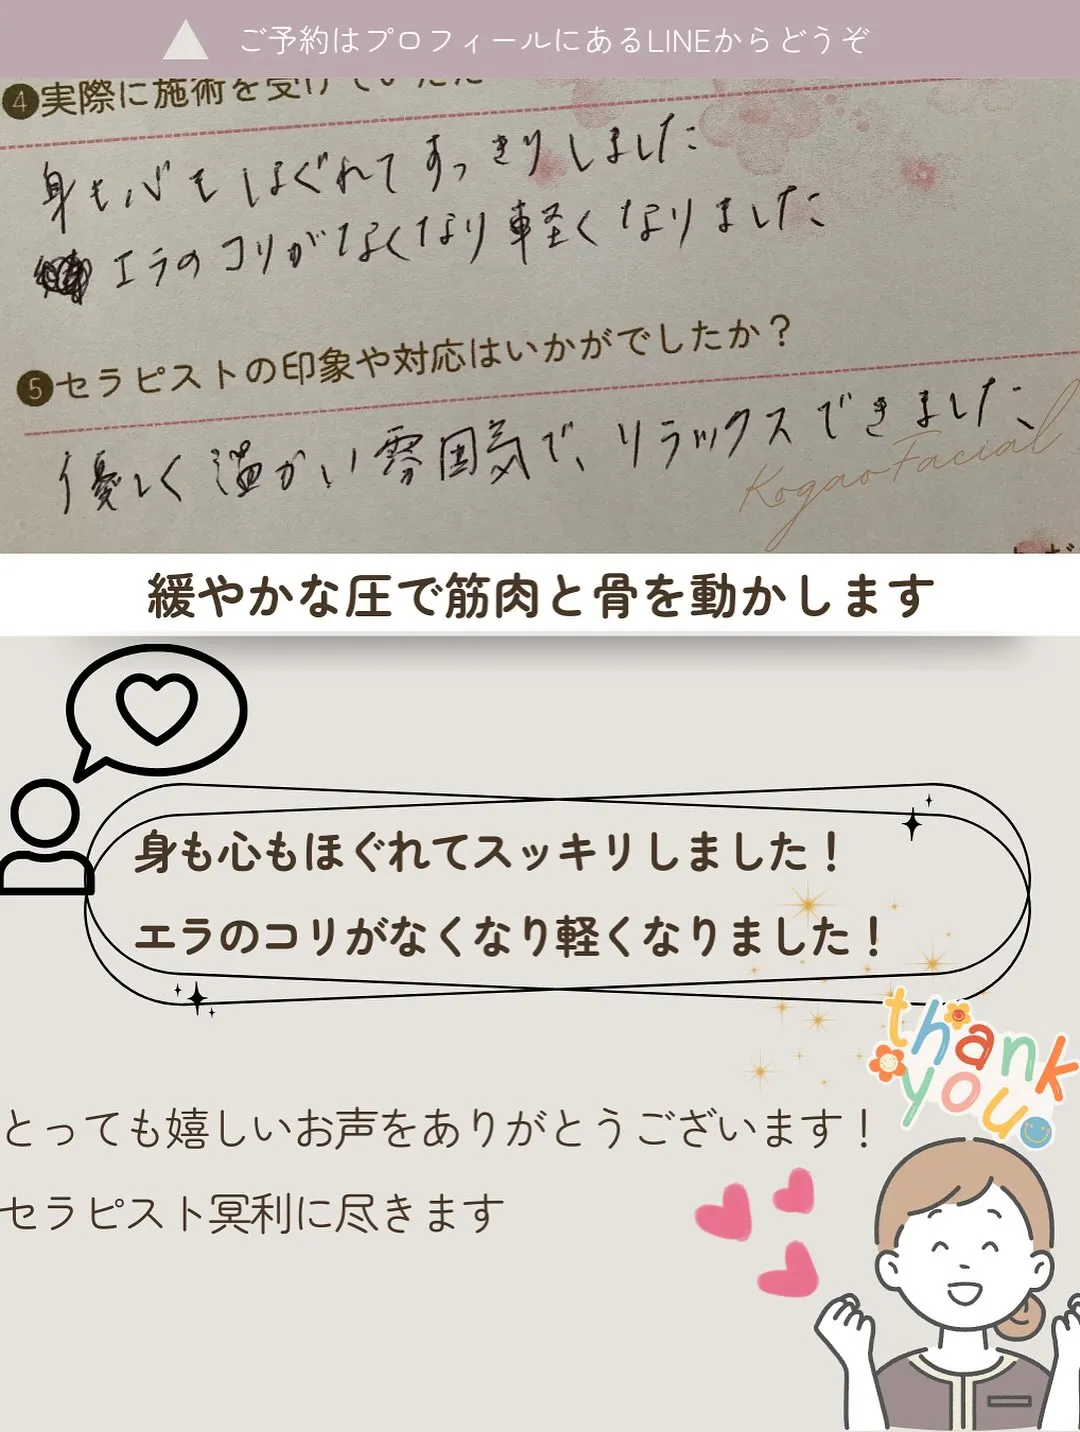 ご予約はプロフィールにあるLINEからどうぞ
4実際に施術を受けていただ
身も心もほぐれてすっきりしました
エラのコリがなくなり軽くなりました
5セラピストの印象や対応はいかがでしたか？
優しく温かい雰囲気で、リラックスできました
Kogao Facial
緩やかな圧で筋肉と骨を動かします
身も心もほぐれてスッキリしました！
エラのコリがなくなり軽くなりました！
thank
you
とっても嬉しいお声をありがとうございます！
セラピスト冥利に尽きます